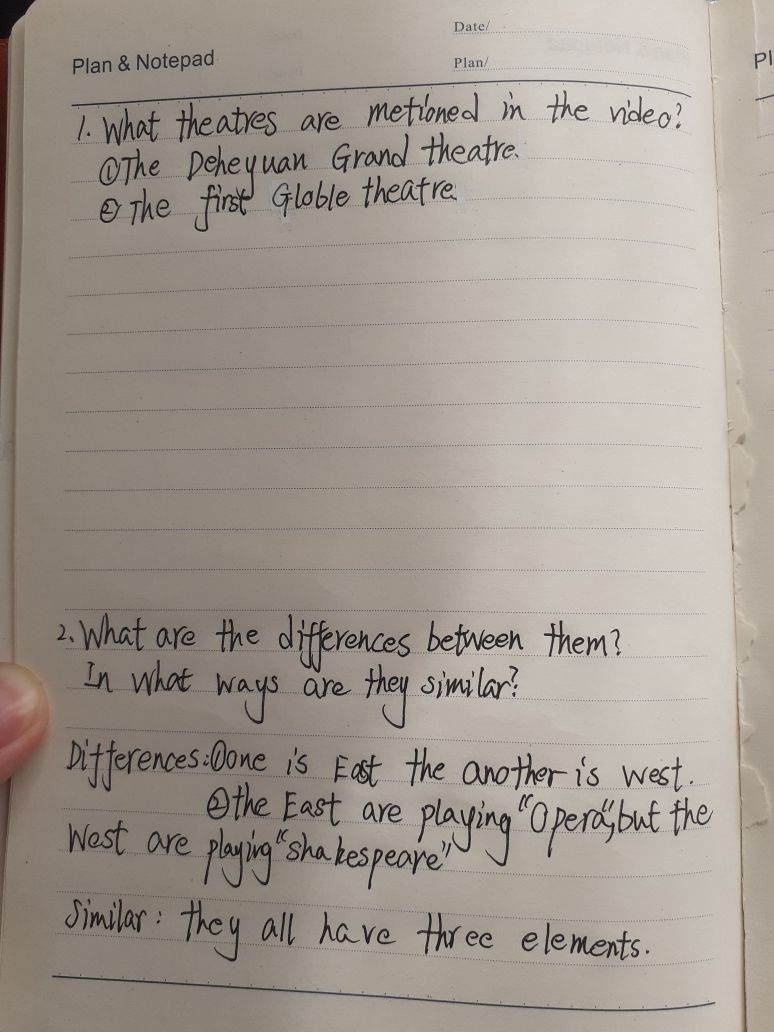 Date/
Plan & Notepad
Plan/
Pl
1. What theatres are metioned in the video?
①The Deheyuan Grand theatre.
② The first Globle theatre.
2. What are the differences between them?
In what ways are they similar?
Differences:①one is East the another is west.
②the East are playing "Opera", but the
West are playing "shakespeare"
Similar: they all have three elements.